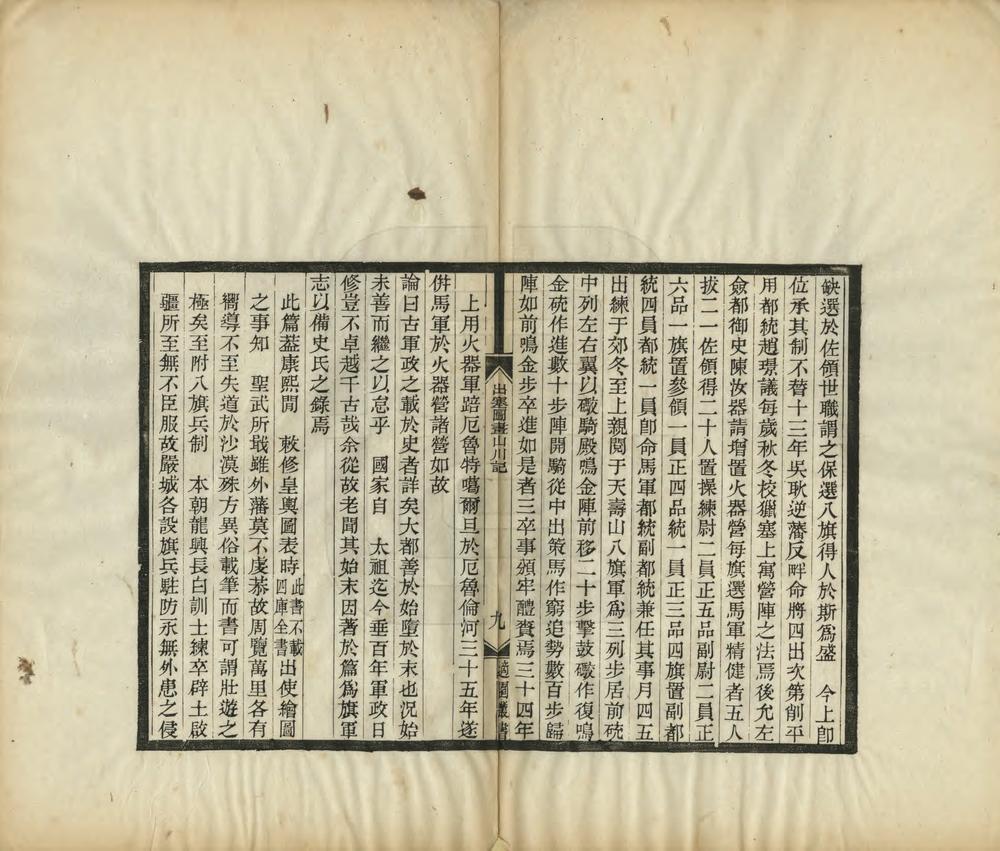 缺選於佐領世職謂之保選八旗得人於斯爲盛　今上卽
位承其制不替十三年吳耿逆藩反畔命將四出次第削平
用都統趙璟議每歲秋冬校獵塞上寓營陣之法焉後允左
僉都御史陳汝器請增置火器營每旗選馬軍精健者五人
拔二一佐領得二十人置操練尉二員正五品副尉二員正
六品一旗置參領一員正四品統一員正三品四旗置副都
統四員都統一員卽命馬軍都統副都統兼任其事月四五
出練于郊冬至上親閱于天壽山八旗軍爲三列步居前砲
中列左右翼以礮騎殿鳴金陣前移二十步擊鼓礮作復鳴
金砲作進數十步陣開騎從中出策馬作窮追勢數百步歸
陣如前鳴金步卒進如是者三卒事頒牢醴賚焉三十四年
出塞圖畫山川記
九
適園叢書
上用火器軍踣厄魯特噶爾旦於厄魯倫河三十五年遂
併馬軍於火器營諸營如故
論曰古軍政之載於史者詳矣大都善於始墮於末也況始
未善而繼之以怠乎　國家自　太祖迄今垂百年軍政日
修豈不卓越千古哉余從故老聞其始末因著於篇爲旗軍
志以備史氏之錄焉
此篇葢康熙閒　敕修皇輿圖表時此書不載四庫全書出使繪圖
之事知　聖武所戢雖外藩莫不虔恭故周覽萬里各有
嚮導不至失道於沙漠殊方異俗載筆而書可謂壯遊之
極矣至附八旗兵制　本朝龍興長白訓士練卒辟土啟
疆所至無不臣服故嚴城各設旗兵駐防永無外患之侵